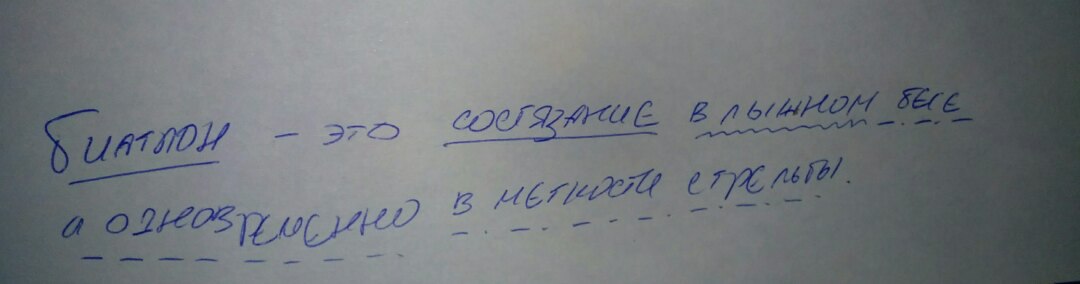 Биатлон - это состязание в лыжном беге
и одновременно в меткости стрельбы.